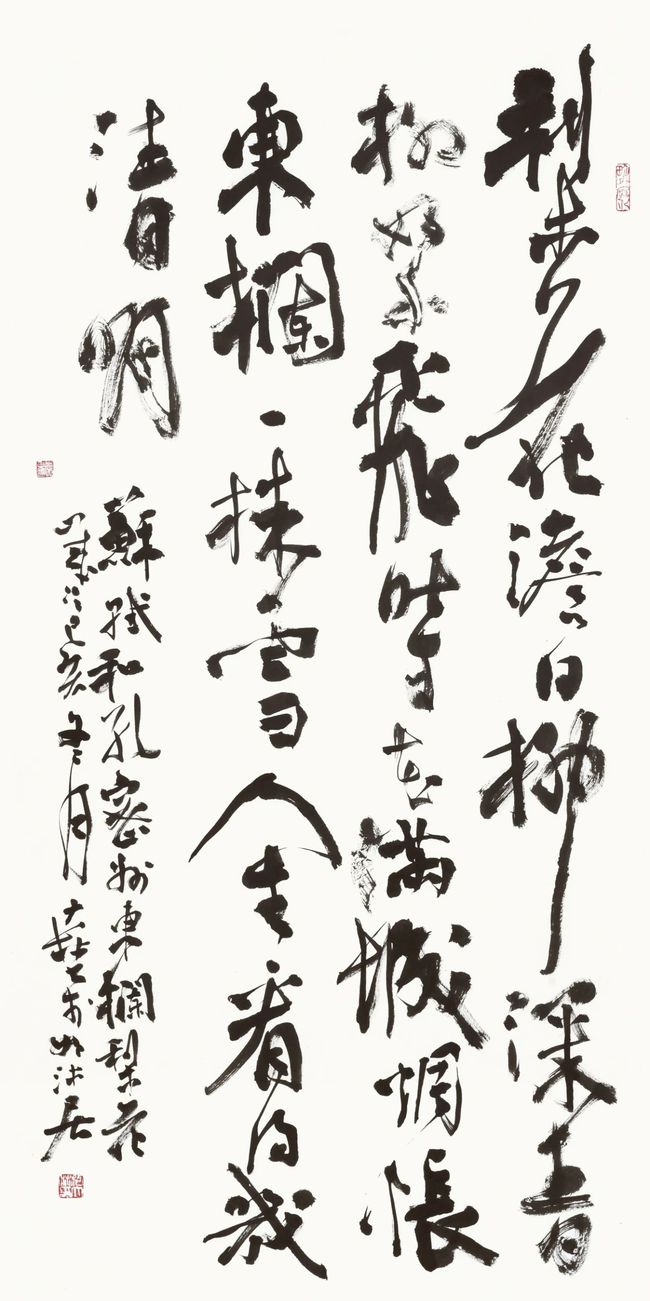 梨花澹白柳深青
柳絮飛時花滿城惆悵
東欄一株雪人生看得幾
清明
蘇軾和孔密州東欄梨花
歲次己亥冬月 居